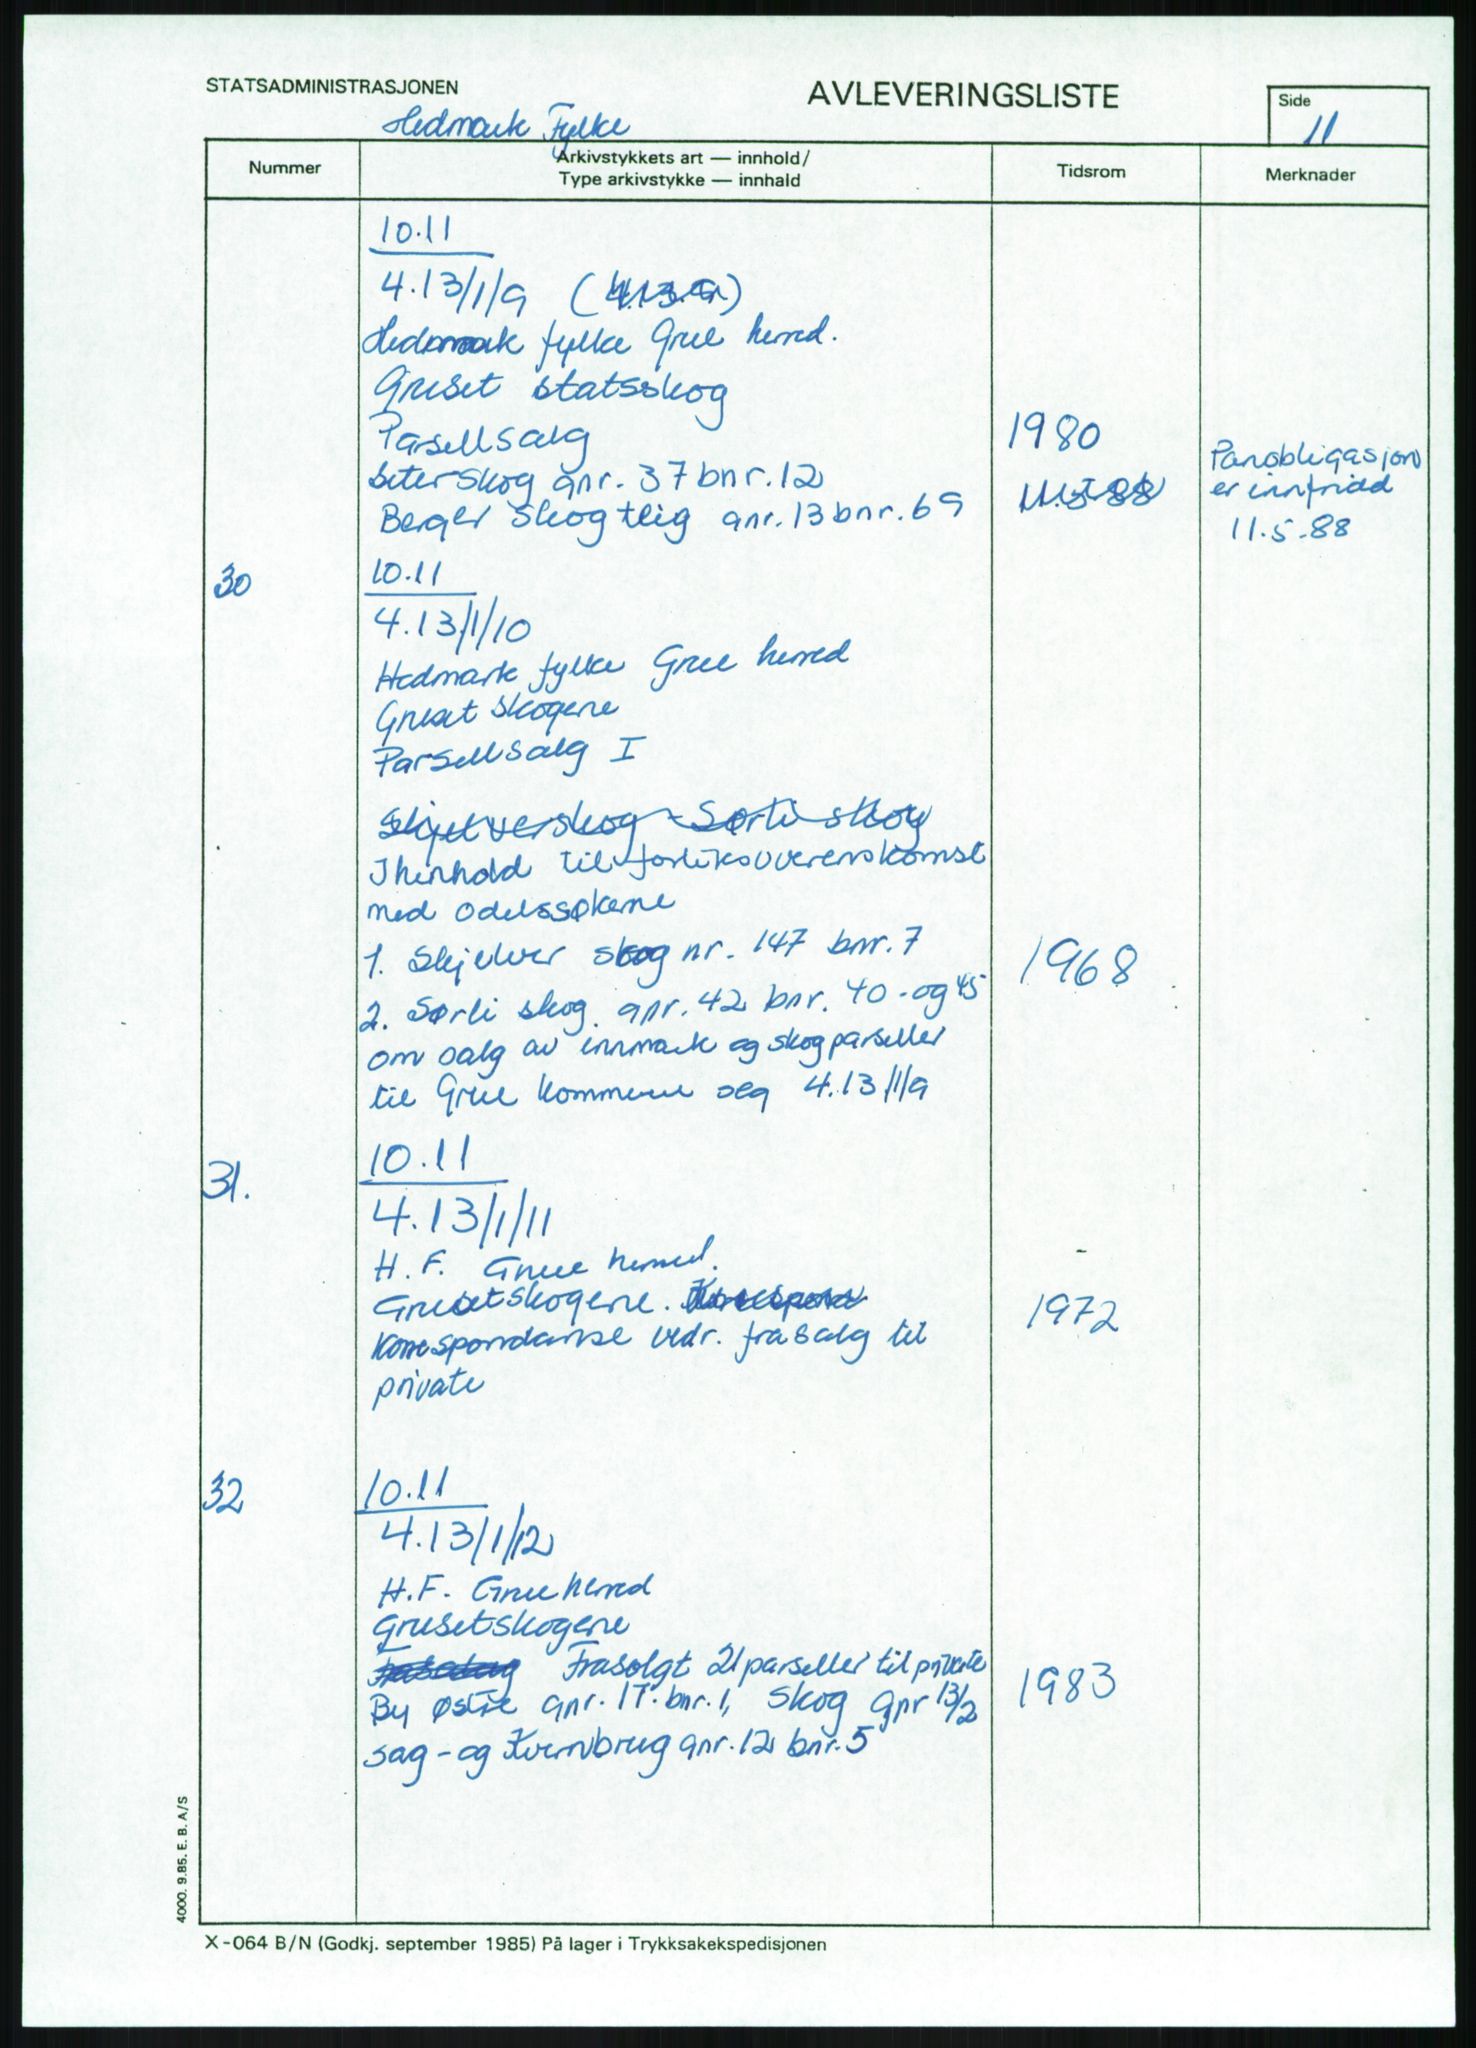 STATSADMINISTRASJONEN
AVLEVERINGSLISTE
Side
11
Hedmark Fylke
Nummer
Arkivstykkets art — innhold/
Type arkivstykke — innhald
Tidsrom
Merknader
10.11
4.13/1/9 (4.13.9)
Hedmark fylke Grue herred.
Gruset statsskog
Parsellsalg
Seterskog gnr. 37 bnr. 12
Berger Skogtlig gnr. 13 bnr. 69
1980
11.5-88
Panobligasjon
er innfridd
11.5-88
30
10.11
4.13/1/10
Hedmark fylke Grue herred
Gruset skogene
Parsellsalg I
Skjelverskog - Sørli skog
I henhold til forliksoverenskomst
med odelssøkerne
1. Skjelver skog nr. 147 bnr. 7
2. Sørli skog gnr. 42 bnr. 40 - og 45
om salg av innmark og skogparseller
til Grue kommune seg 4.13/1/9
1968
31.
10.11
4.13/1/11
H.F. Grue herred.
Grusetskogene. Korrespond
Korrespondanse vedr. frasalg til
private
1972
32
10.11
4.13/1/12
H.F. Grue herred
Grusetskogene
Frasolgt 21 parseller til private
By østre gnr. 17. bnr. 1, Skog gnr 13/2
sag- og Kvernbrug gnr. 12 bnr. 5
1983
4000. 9.85. E. B. A/S
X-064 B/N (Godkj. september 1985) På lager i Trykksakekspedisjonen